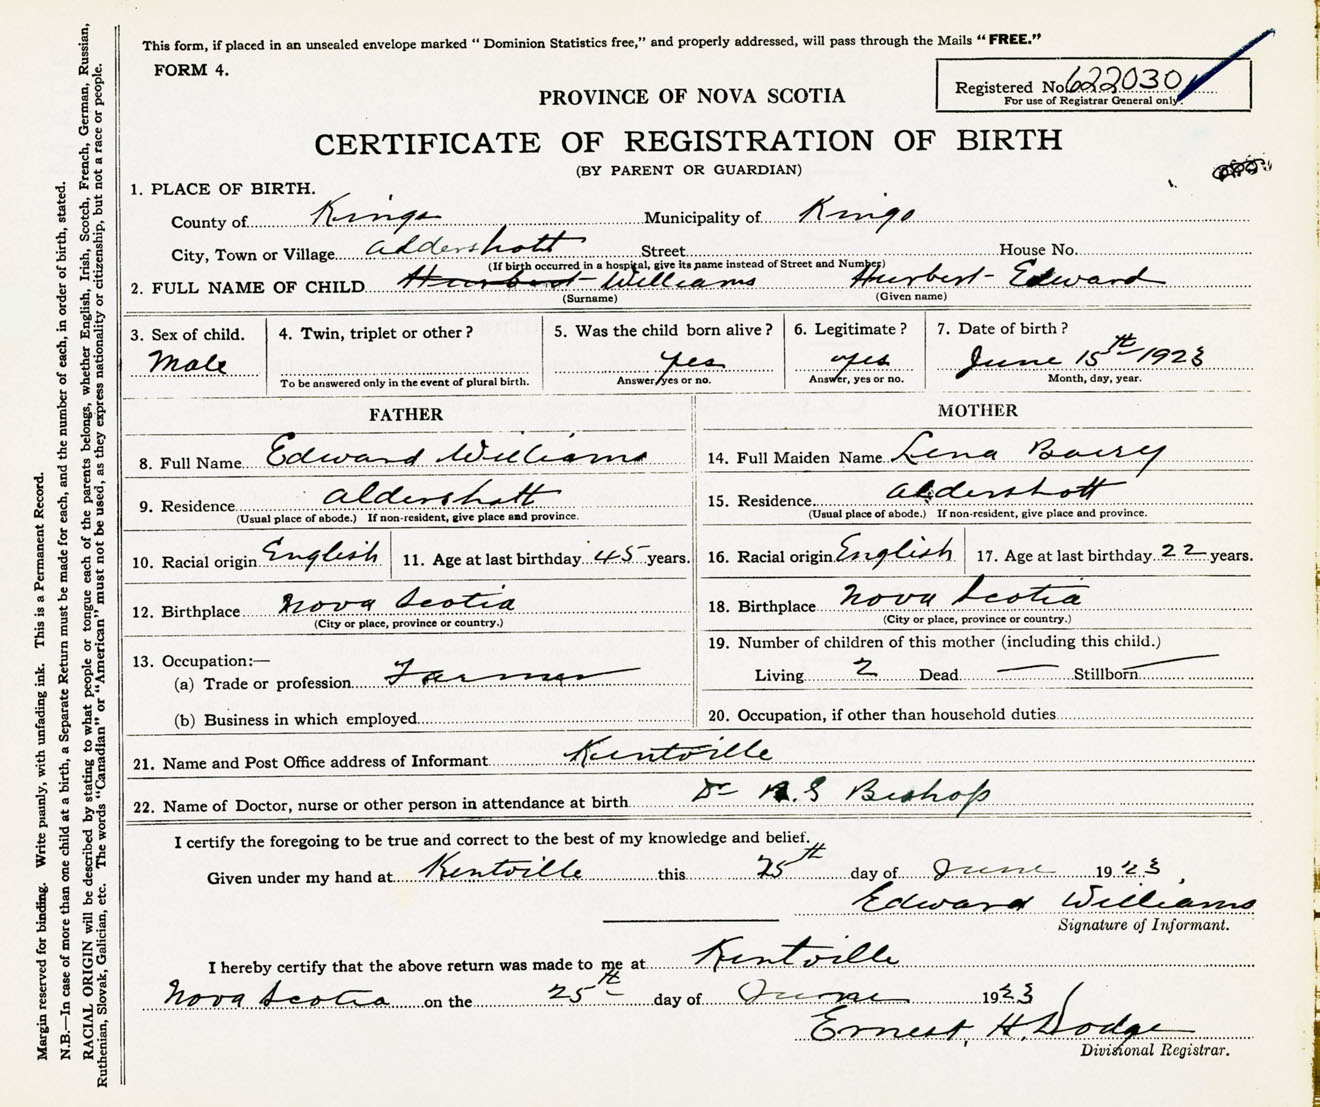 This form, if placed in an unsealed envelope marked " Dominion Statistics free," and properly addressed, will pass through the Mails " FREE."
FORM 4.
Registered No. 622030
For use of Registrar General only.
PROVINCE OF NOVA SCOTIA
CERTIFICATE OF REGISTRATION OF BIRTH
(BY PARENT OR GUARDIAN)
1. PLACE OF BIRTH.
County of Kings Municipality of Kings
City, Town or Village Aldershott Street House No.
(If birth occurred in a hospital, give its name instead of Street and Number)
2. FULL NAME OF CHILD Williams Hurbert Edward
(Surname) (Given name)
3. Sex of child. 4. Twin, triplet or other ? 5. Was the child born alive ? 6. Legitimate ? 7. Date of birth ?
Male yes yes June 15th 1923
To be answered only in the event of plural birth. Answer, yes or no. Answer, yes or no. Month, day, year.
FATHER MOTHER
8. Full Name Edward Williams 14. Full Maiden Name Lena
9. Residence Aldershott 15. Residence Aldershott
(Usual place of abode.) If non-resident, give place and province. (Usual place of abode.) If non-resident, give place and province.
10. Racial origin English 11. Age at last birthday 45 years. 16. Racial origin English 17. Age at last birthday 22 years.
12. Birthplace Nova Scotia 18. Birthplace Nova Scotia
(City or place, province or country.) (City or place, province or country.)
13. Occupation:— 19. Number of children of this mother (including this child.)
(a) Trade or profession Farmer Living 2 Dead — Stillborn —
(b) Business in which employed 20. Occupation, if other than household duties
21. Name and Post Office address of Informant Kentville
22. Name of Doctor, nurse or other person in attendance at birth Dr Bishop
I certify the foregoing to be true and correct to the best of my knowledge and belief.
Given under my hand at Kentville this 25th day of June 1923
Edward Williams
Signature of Informant.
I hereby certify that the above return was made to me at Kentville
Nova Scotia on the 25th day of June 1923
Ernest H. Dodge
Divisional Registrar.
Margin reserved for binding. Write plainly, with unfading ink. This is a Permanent Record.
N.B.—In case of more than one child at a birth, a Separate Return must be made for each, and the number of each, in order of birth, stated.
RACIAL ORIGIN will be described by stating to what people or tongue each of the parents belongs, whether English, Irish, Scotch, French, German, Russian,
Ruthenian, Slovak, Galician, etc. The words "Canadian" or "American" must not be used, as they express nationality or citizenship, but not a race or people.